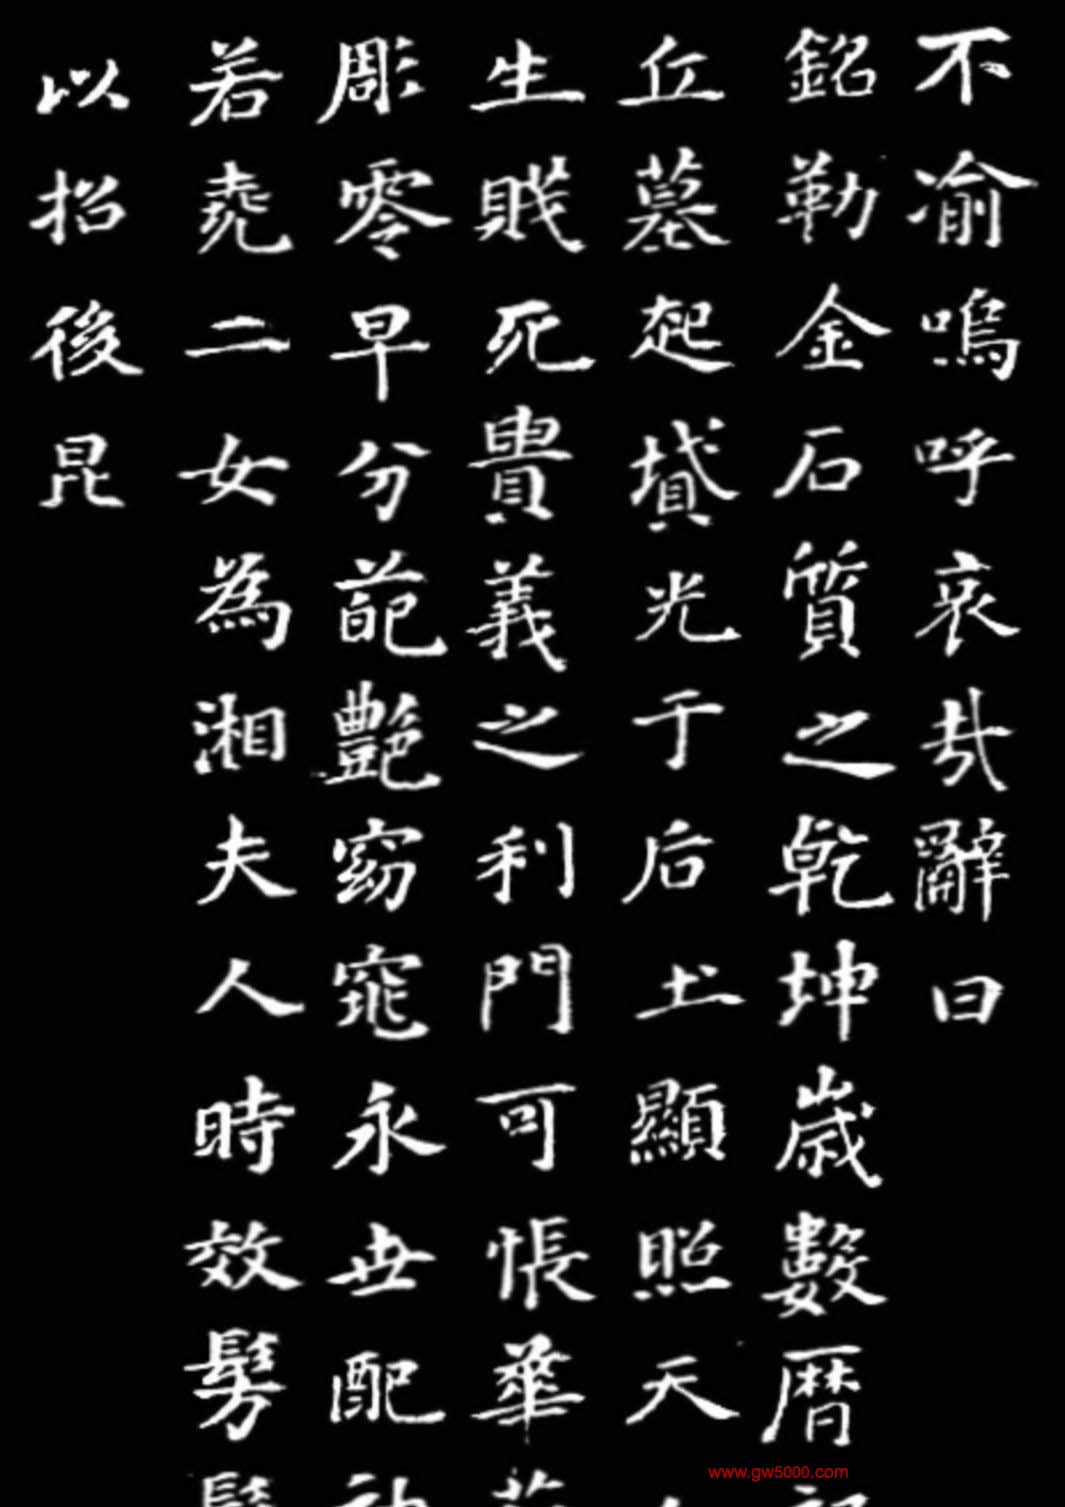 不渝嗚呼哀哉辭曰
銘勒金石質之乾坤歲數曆
丘墓起墳光于后土顯照天
生賤死貴義之利門可悵華
彫零早分葩艷窈窕永世配
若堯二女為湘夫人時效髣
以招後昆
www.gw5000.com